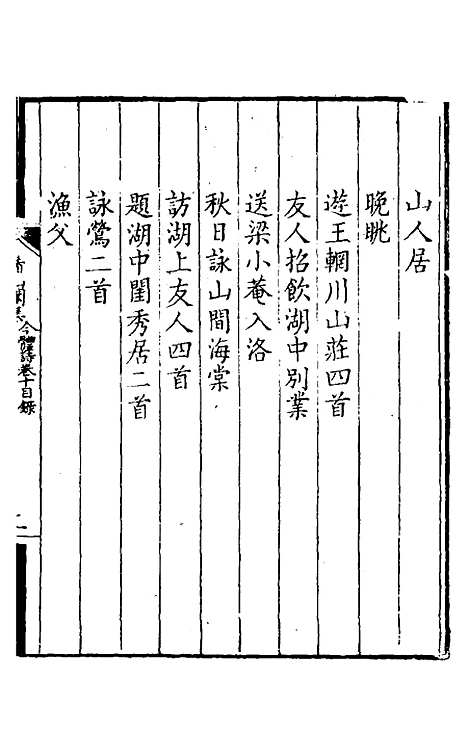 山人居
晚眺
遊王輞川山莊四首
友人招飲湖中別業
送梁小菴入洛
秋日詠山間海棠
訪湖上友人四首
題湖中閨秀居二首
詠鶯二首
漁父
今體詩卷十目錄